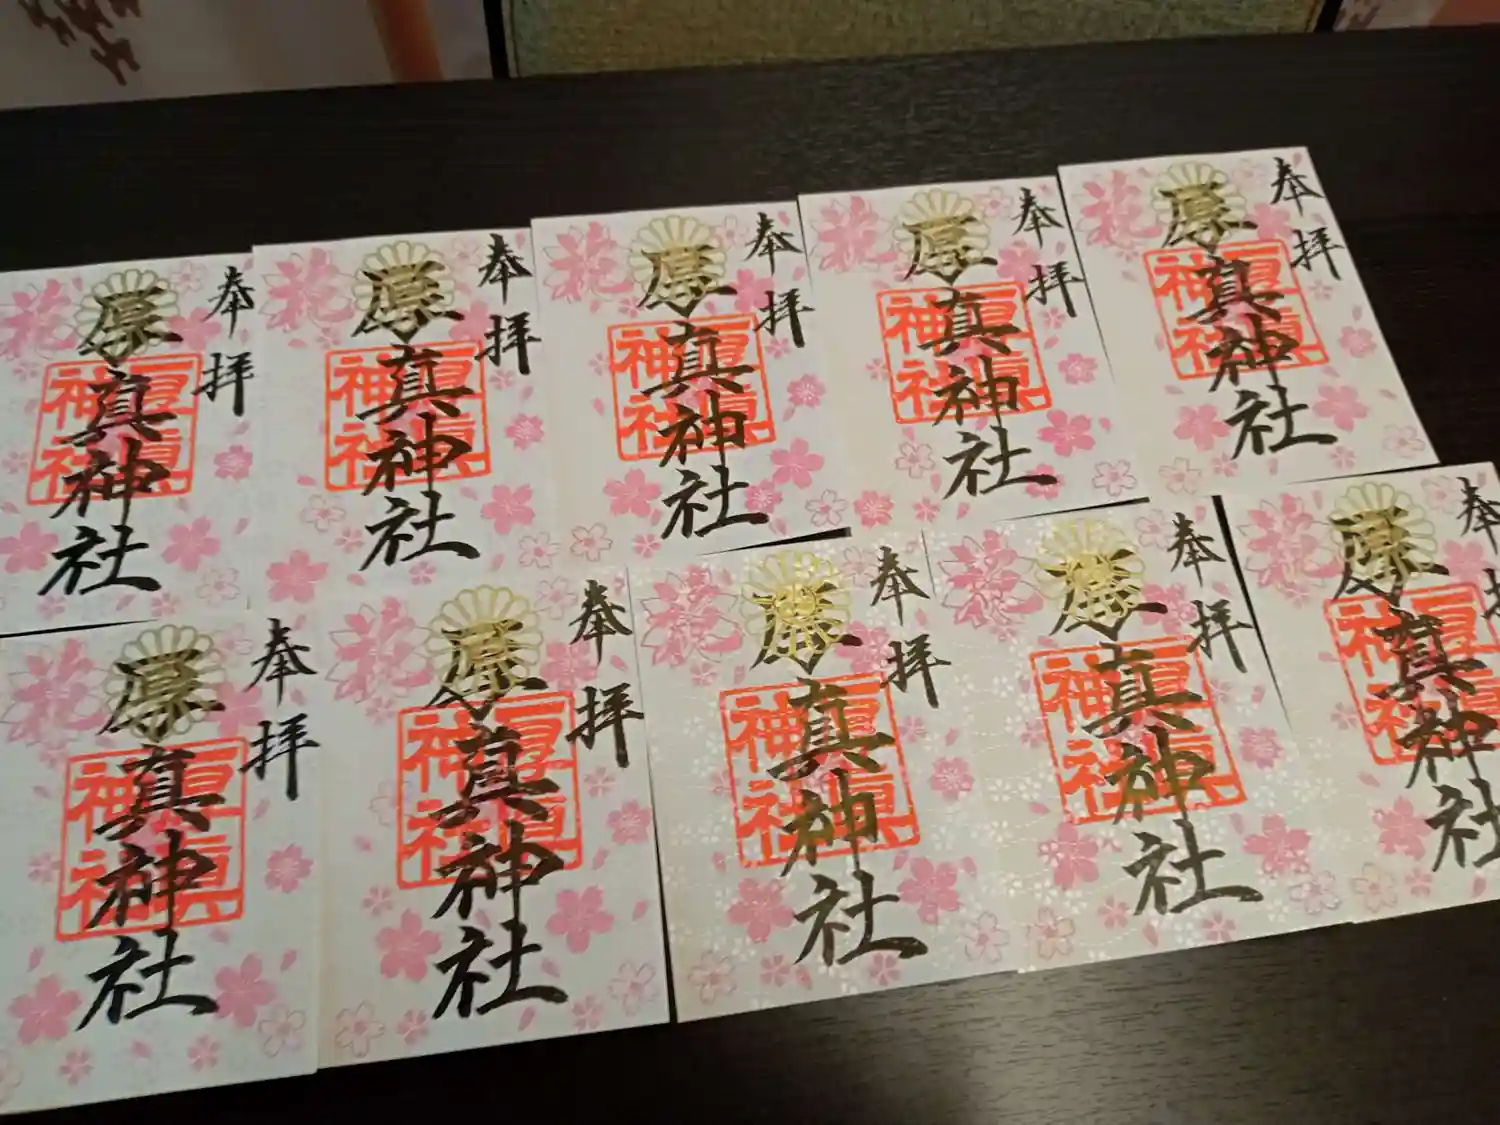 奉拝
厚真神社
厚真
神社
花
奉拝
厚真神社
厚真
神社
花
奉拝
厚真神社
厚真
神社
花
奉拝
厚真神社
厚真
神社
花
奉拝
厚真神社
厚真
神社
花
奉拝
厚真神社
厚真
神社
花
奉拝
厚真神社
厚真
神社
花
奉拝
厚真神社
厚真
神社
奉拝
厚真神社
厚真
神社
奉
厚真神社
厚真
神社